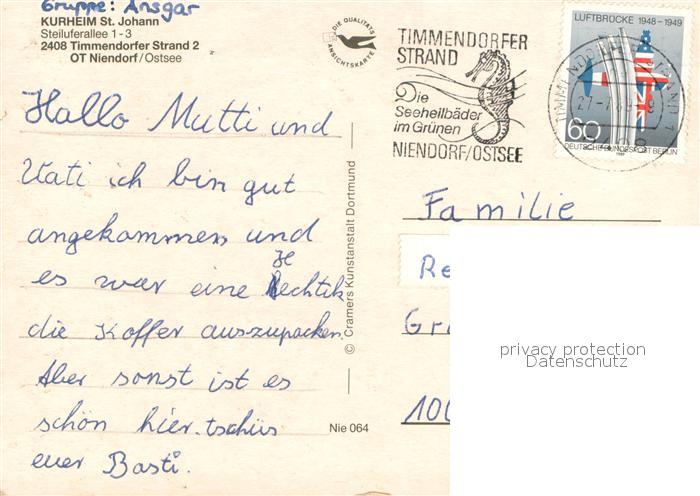 Gruppe: Ansgar
KURHEIM St. Johann
Steiluferallee 1-3
2408 Timmendorfer Strand 2
OT Niendorf/Ostsee
Hallo Mutti und
Vati ich bin gut
angekommen und
es war eine Hechtik
die Koffer auszupacken.
Aber sonst ist es
schön hier. tschüs
euer Basti.
DIE QUALITÄTS
ANSICHTSKARTE
© Cramers Kunstanstalt Dortmund
Nie 064
TIMMENDORFER
STRAND
Die
Seeheilbäder
im Grünen
NIENDORF/OSTSEE
LUFTBRÜCKE 1948-1949
60
DEUTSCHE BUNDESPOST BERLIN
Familie
Re
Gr
100
privacy protection
Datenschutz